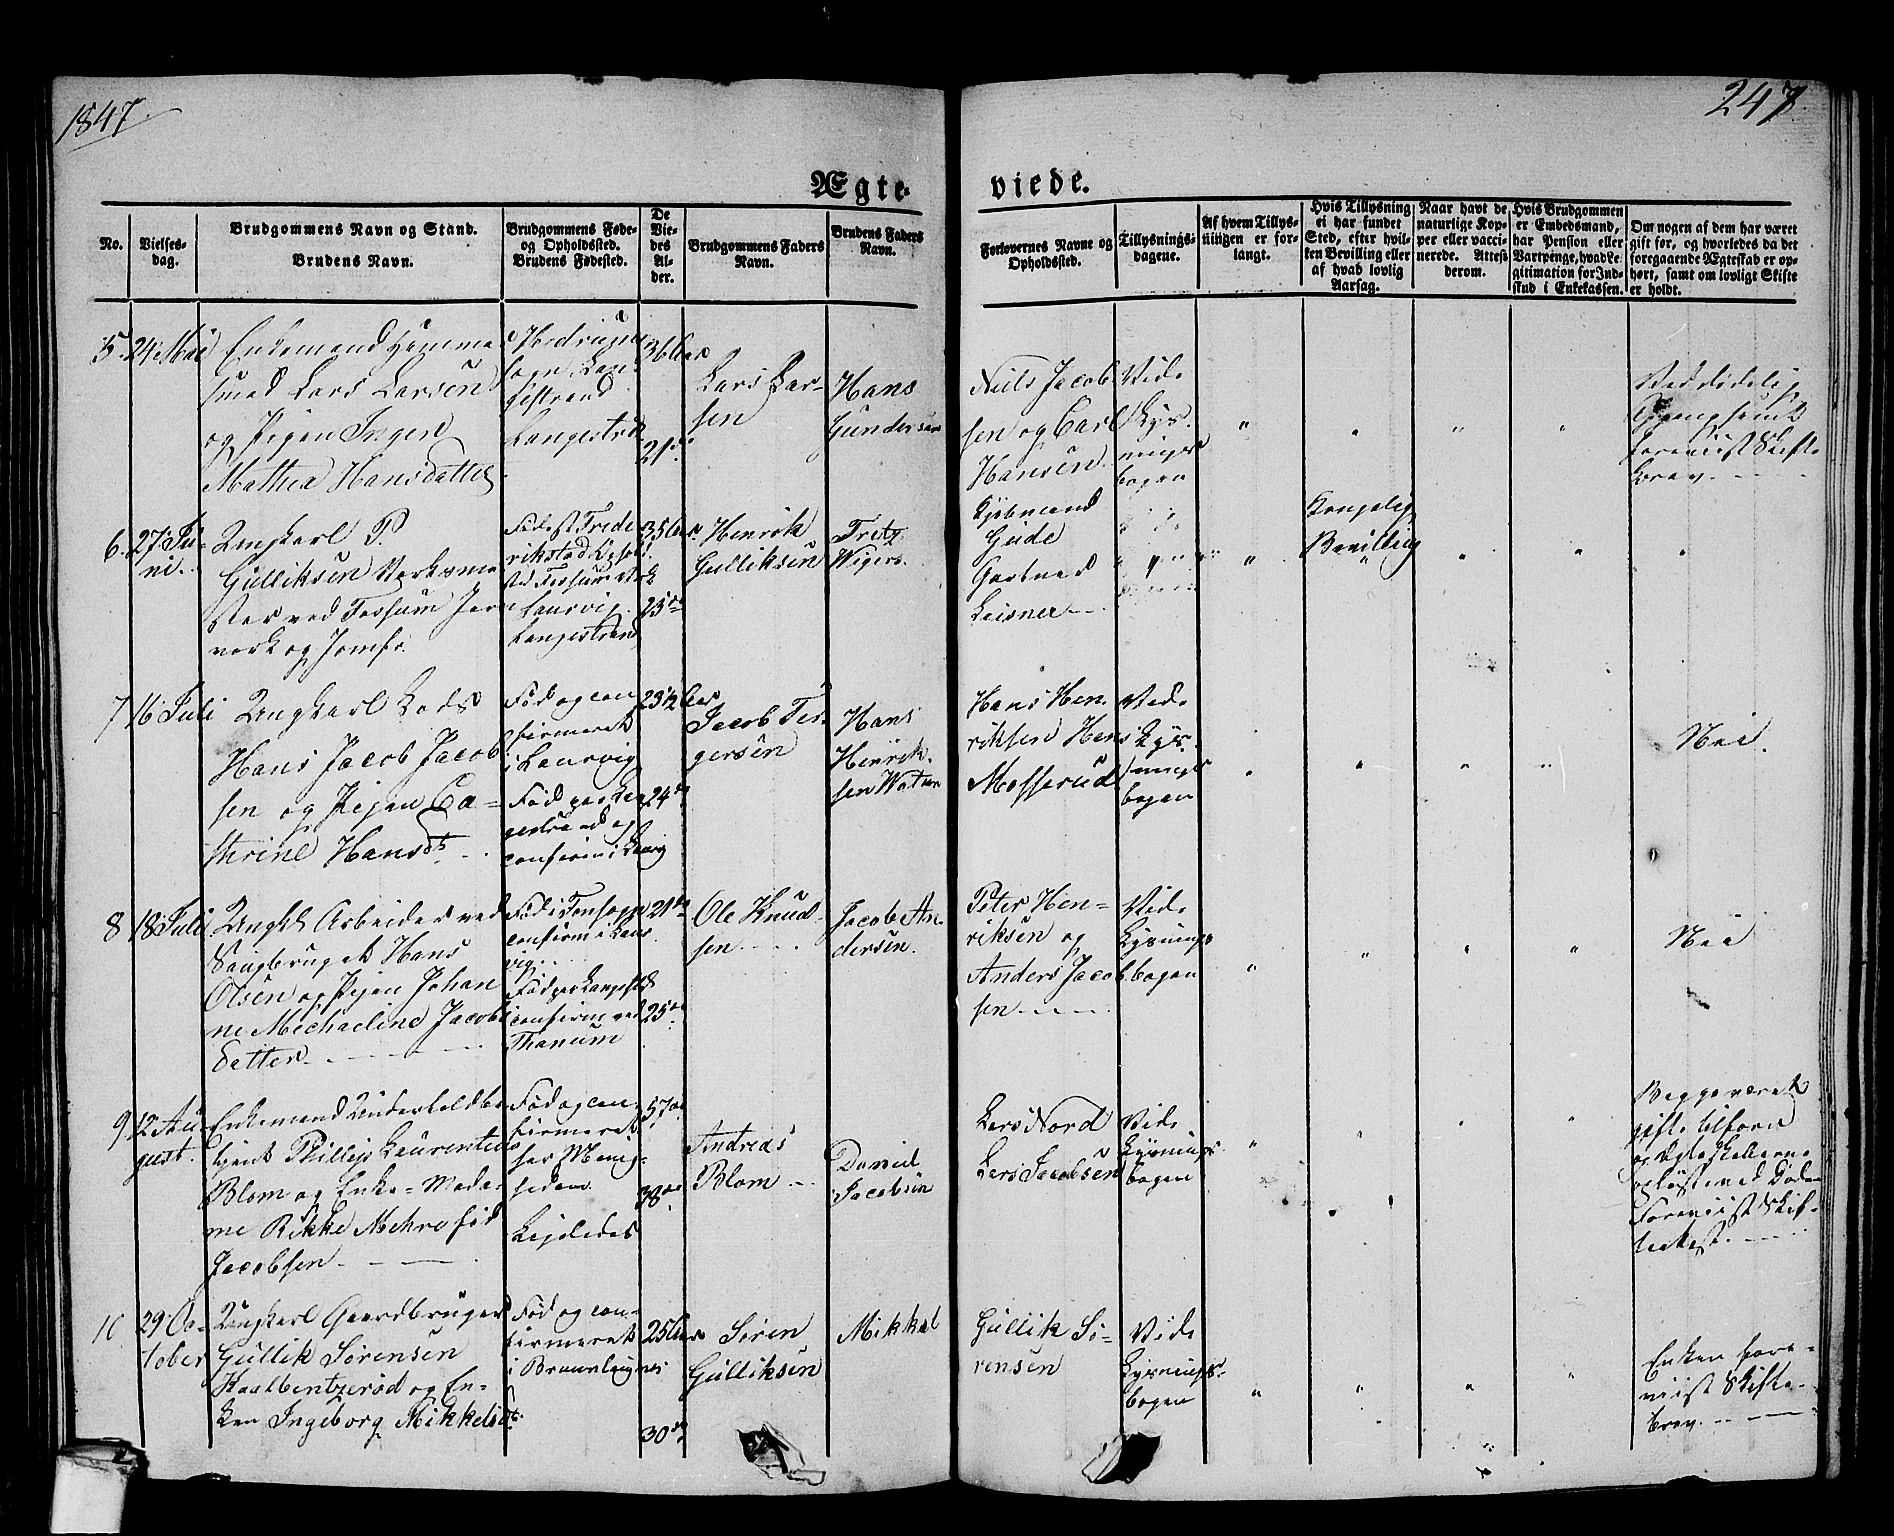 1847.
247.
Ægte-
viede.
No.
Vielses-
dag.
Brudgommens Navn og Stand.
Brudens Navn.
Brudgommens Føde-
og Opholdssted.
Brudens Fødested.
De
Vie-
des
Al-
der.
Brudgommens Faders
Navn.
Brudens Faders
Navn.
Forlovernes Navne og
Opholdssted.
Tillysnings-
dagene.
Af hvem Tillys-
ningen er for-
langt.
Hvis Tillysning
ei har fundet
Sted, efter hvil-
ken Bevilling eller
af hvad lovlig
Aarsag.
Naar havt de
naturlige Kop-
per eller vacci-
nerede. Attest
derom.
Hvis Brudgommen
er Embedsmand,
har Pension eller
Vartpenge, hvad Le-
gitimation for Ind-
skud i Enkekassen.
Om nogen af dem har været
gift før, og hvorledes da det
foregaaende Ægteskab er op-
hørt, samt om lovligt Skifte
er holdt.
5. 24 Mai
Enkemand
smed Lars Larsen
og Pigen Inger
Mathea Hansdatter
Langestrand
36 Aar
21
Lars Lar-
sen
Hans
Gundersen
Niels Jacob
sen og Carl
Hansen
Vide
Lys-
nings
bogen
Skifte
brev
6. 27 Ju-
ni.
Ungkarl P.
Gulliksen Verksme
ster ved Fossum Jern
verk og Jomfr.
Fød
rikstad
Fossum
Laurvig
Langestrand
35 Aar
23
Henrik
Gulliksen
Fritz
Wigers.
Kjøbmand
Gude
Gartner
Leisner
Kongelig
Bevilling
7 16 Juli
Ungkarl Lods
Hans Jacob Jacob
sen og Pigen Ca-
thrine Hansdt
Fød og con
firmeret
i Laurvig
Fød paa Lan
gestrand og
confirm i Laurvig
23 1/2 Aar
24
Jacob Tor-
gersen
Hans
Henrik-
sen
Hans Hen-
riksen Hans
Mosserud
Vide
Lys-
nings
bogen
Nei.
8 18 Juli
Ungkl Arbeider ved
Saugbruget Hans
Olsen og Pigen Johan
ne Michaeline Jacobs
datter
Fød i
confirm i Laur
vig.
Fød paa Langestd
confirm ved
Thanum
21
25
Ole Knud-
sen
Jacob An
dersen.
Peter Hen-
riksen og
Anders Jacob
sen
Vide
Lysnings
bogen
Nei
9 12 Au-
gust.
Enkemand Undertoldbe
tjent Phillip Laurentius
Blom og Enke-Mada-
me Rikke
Jacobsen
Fød og con
firmeret
57
38
Andreas
Blom
Daniel
Jacobsen
Lars Nord
Lars Jacobsen
Vide
Lysnings
bogen
Begge været
gifte tilforn
og Ægteskaberne
opløste ved Døden
Foreviist Skif-
10 29 Oc-
tober
Ungkarl Gaardbruger
Gullik Sørensen
og En-
ken Ingeborg Mikkelsdt.
Fød og con-
firmeret
i Brunlaugnes
25 Aar
30
Søren
Gulliksen
Mikkel
Gullik Sø-
rensen
Vide
Lysnings-
bogen
Enken fore-
viist Skifte-
brev.